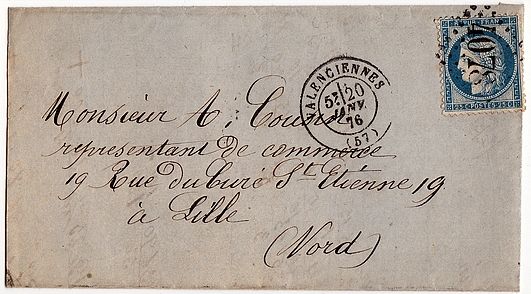 REPUB. FRANC.
25 C. POSTES 25 C.
VALENCIENNES
5E 20
JANV.
76
(57)
Monsieur A.
représentant de commerce
19 Rue du Curé St Etienne 19
à Lille
(Nord)